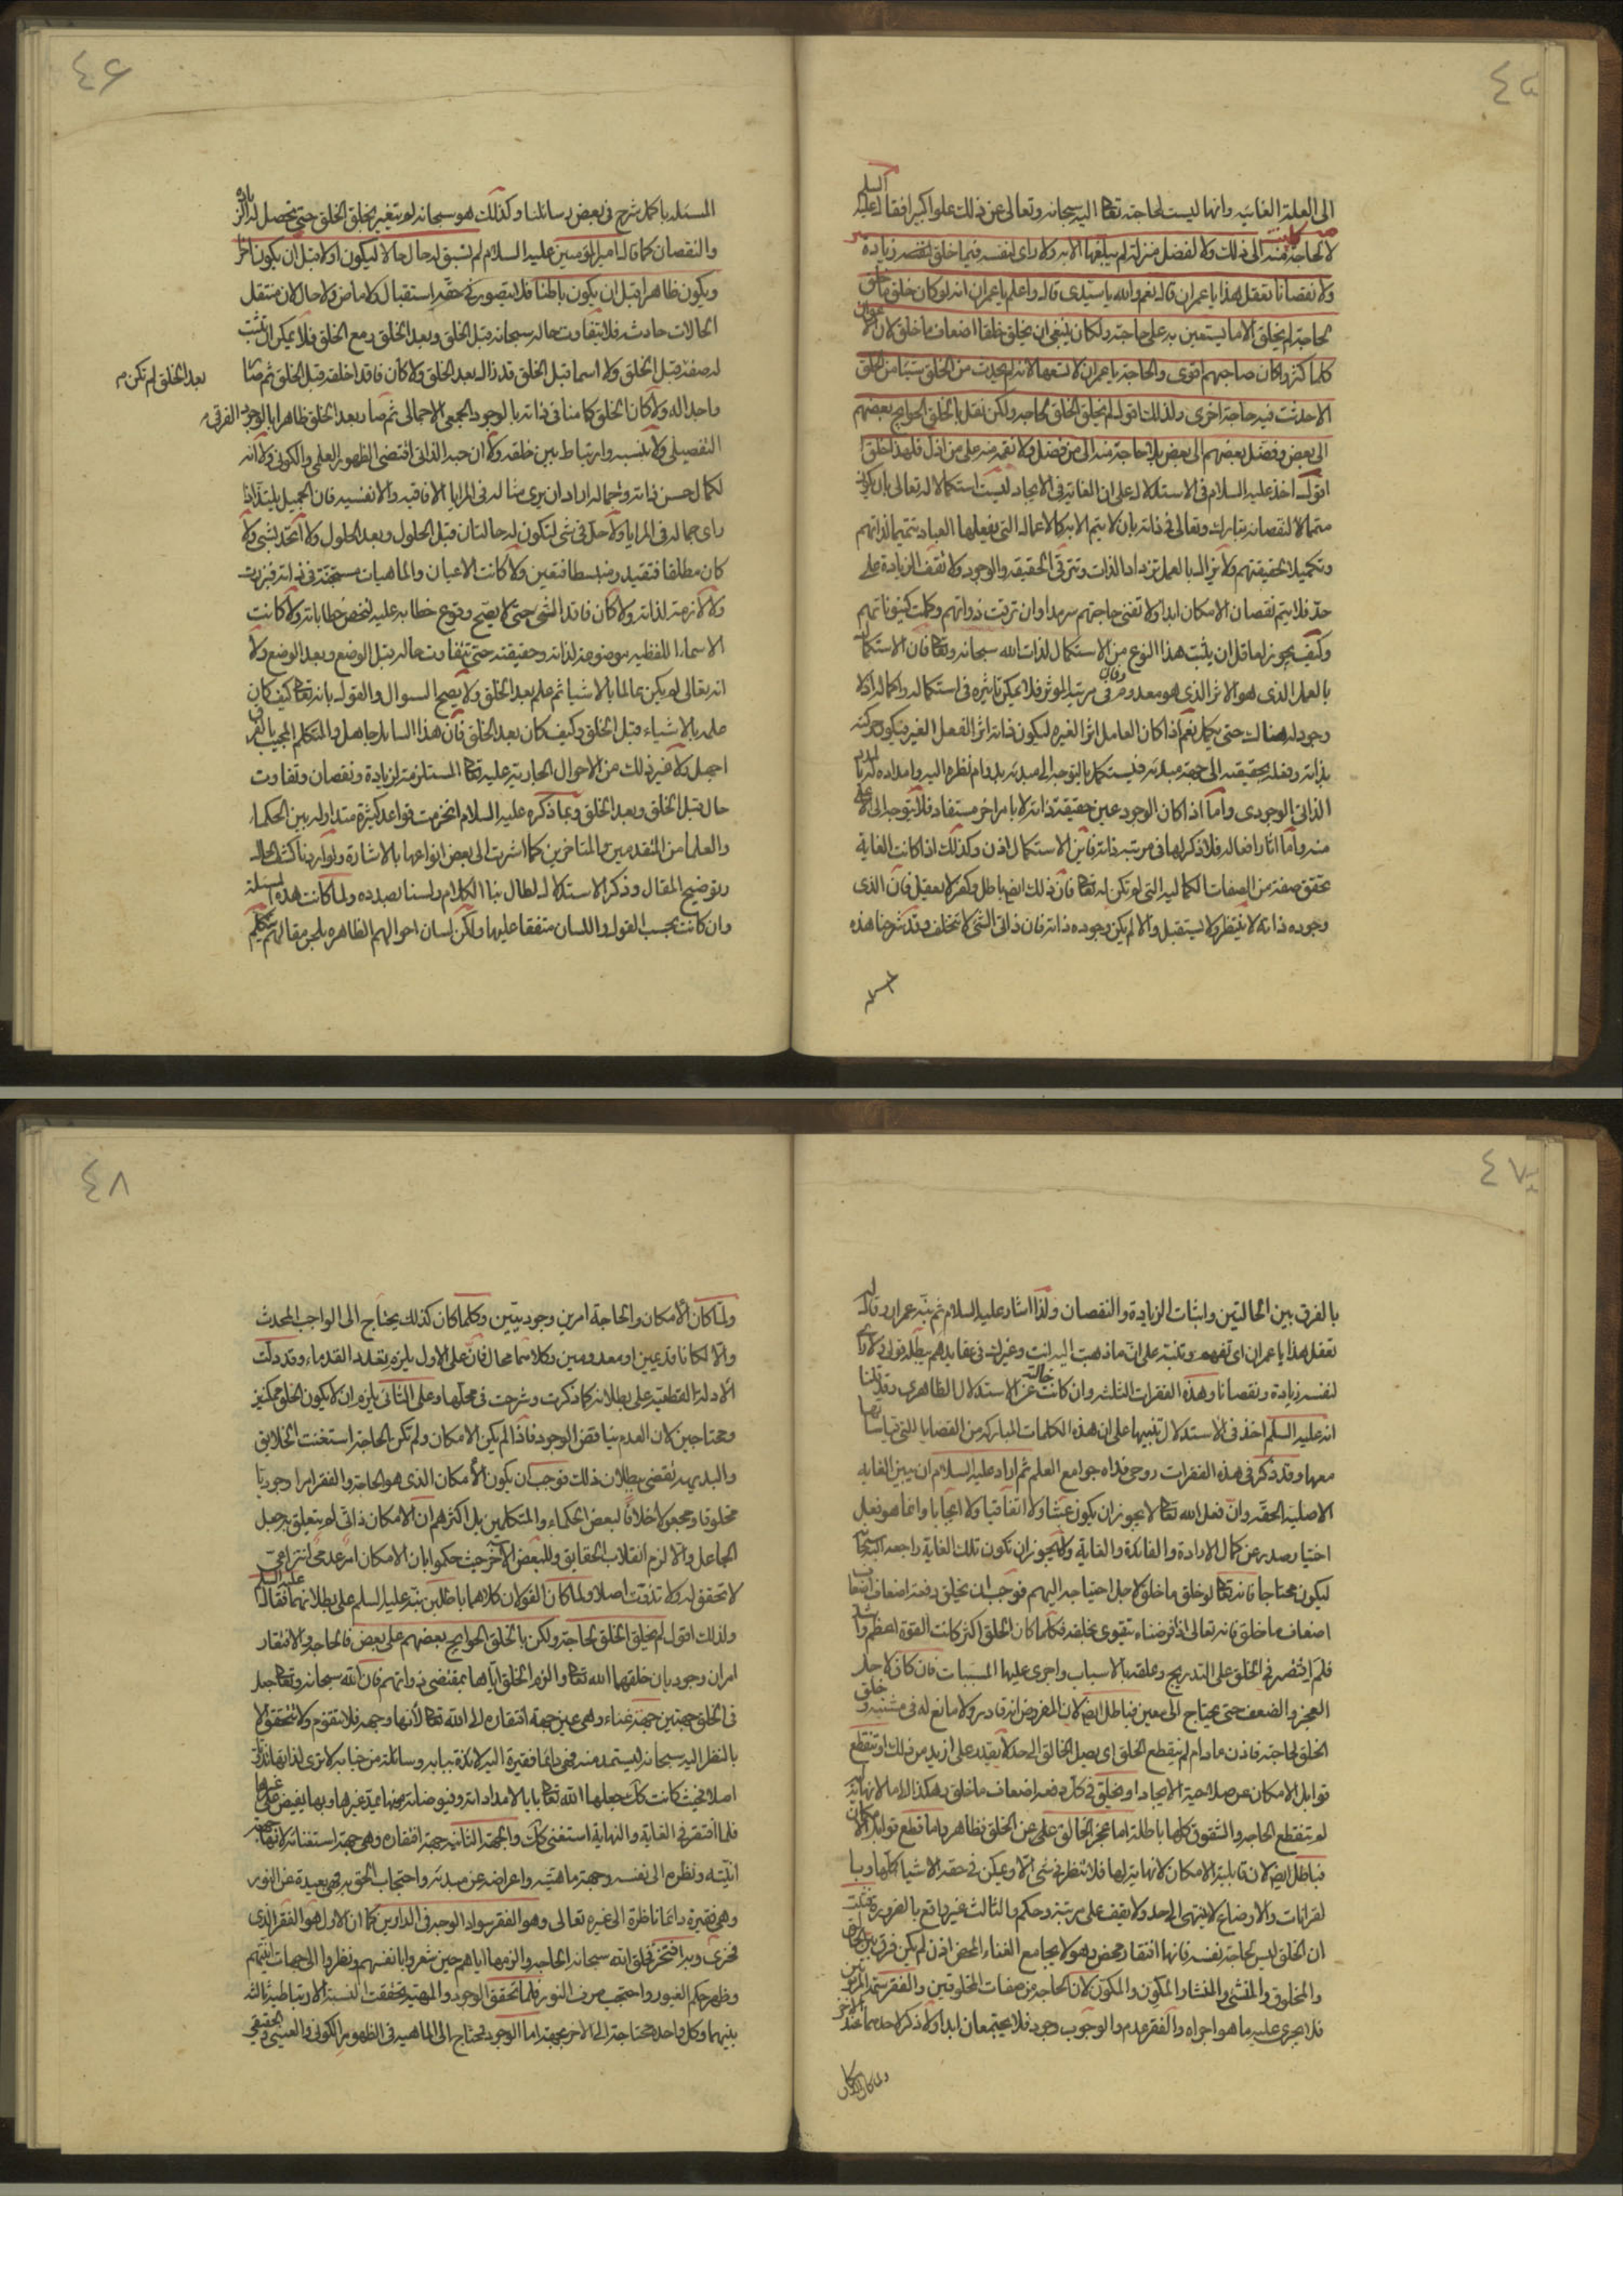 ٤٥
الى العلة الغائيه وانها ليست لحاجته تعالى اليه سبحانه وتعالى عن ذلك علوا كبيرا فقال عليه السلم
لا لحاجة كانت منه الى ذلك ولا لفضل منزلة لم يبلغها الا به ولا راى لنفسه فيما خلق لنفسه زيادة
ولا نقصانا تعقل هذا يا عمران قال نعم والله يا سيدى قال واعلم يا عمران انه لو كان خلق ما خلق
لحاجة لم يخلق الا ما يستعين به على حاجته ولكان ينبغى ان يخلق خلقا اضعاف ما خلق لان الاعوان
كلما كثروا كان صاحبهم اقوى والحاجة يا عمران لا تسعها لانه لم يحدث من الخلق شيئا من الخلق
الا حدثت فيه حاجة اخرى ولذلك اقول لم يخلق الخلق لحاجة ولكن نقل بالخلق الحوايج بعضهم
الى بعض وفضل بعضهم الى بعض بلا حاجة منه الى من فضل ولا نقمة منه على من اذل فلهذا خلق
اقول اخذ عليه السلام فى الاستدلال على ان الغاية فى الايجاد ليست استكمالا له تعالى بان يكون
متمما لا لنقصانه تبارك وتعالى فى ذاته بان لا يتم الا به كالاعمال التى يفعلها العباد تتميما لذاتهم
وتكميلا لحقيقتهم ولا تزال بالعمل تزداد الذات وتترقى الحقيقه والوجود ولا تقف الزيادة على
حد فلا يتم نقصان الامكان ابدا ولا تفنى حاجتهم سرمدا وان ترقت ذواتهم وكملت كينوناتهم
وكيف يجوز لعاقل ان يثبت هذا النوع من الاستكمال لذات الله سبحانه وتعالى فان الاستكمال
بالعمل الذى هو الاثر الذى هو معدوم وفان فى مرتبة المؤثر فلا يمكن تاثيره فى استكماله واكماله اذ لا
وجود له هناك حتى يكمل نعم اذا كان العامل اثرا لغيره ليكون ذاته اثر الفعل الغير فيكون حركته
بذاته وفعله بحقيقته الى جهة مبدئه فيستكمل بالتوجه الى مبدئه بدوام نظره اليه وامداده له بالمدد
الذاتى الوجودى واما اذا كان الوجود عين حقيقة ذاته لا بامر اخر مستفاد فلا يتوجه الى الاعلى
منه واما اثار افعاله فلا ذكر لها فى مرتبة ذاته فاين الاستكمال اذن وكذلك اذا كانت الغاية
تحقق صفة من الصفات الكماليه التى لم تكن له تعالى فان ذلك ايضا باطل وكفر لا يعقل فان الذى
وجوده ذاته لا ينتظر ولا يستقبل والا لم يكن وجوده ذاته فان ذاتى الشئ لا يتخلف وقد شرحنا هذه
٤٦
المسئله باكمل شرح فى بعض رسائلنا وكذلك هو سبحانه لم يتغير بخلق الخلق حتى يحصل له الزيادة
والنقصان كما قال امير المؤمنين عليه السلام لم تسبق له حال حالا ليكون اولا قبل ان يكون اخرا
ويكون ظاهرا قبل ان يكون باطنا فلا يتصور فى حقه استقبال ولا ماض ولا حال لان منتقل
الحالات حادث فلا يتفاوت حاله سبحانه قبل الخلق وبعد الخلق ومع الخلق فلا يمكن ان تثبت
له صفة قبل الخلق ولا اسما قبل الخلق قد زال بعد الخلق ولا كان فاقدا خلقه قبل الخلق ثم صار
بعد الخلق لم تكن م
واجدا له ولا كان الخلق كامنا فى ذاته بالوجود الجمعى الاجمالى ثم صار بعد الخلق ظاهرا بالوجود الفرقى
التفصيلى ولا بنسبه وارتباط بين خلقه ولا ان حبه الذاتى اقتضى الظهور العلمى والكونى ولا انه
لكمال حسن ذاته وجماله اراد ان يرى مثاله فى المرايا الافاقيه والانفسيه فان الجميل يلتذ اذا
راى جماله فى المرايا ولا حل فى شئ لتكون له حالتان قبل الحلول وبعد الحلول ولا اتحد بشئ ولا
كان مطلقا فتقيد ومنبسطا فتعين ولا كانت الاعيان والماهيات مستجنة فى ذاته فبرزت
ولا لازمة لذاته ولا كان فاقد الشئ حتى لا يصح وقوع خطابه عليه لتخص خطاباته ولا كانت
الاسماء اللفظيه موضوعة لذاته وحقيقته حتى يتفاوت حاله قبل الوضع وبعد الوضع ولا
انه تعالى لم يكن عالما بالاشيا ثم علم بعد الخلق ولا يصح السوال والقول بانه تعالى كيف كان
علمه بالاشياء قبل الخلق وكيف كان بعد الخلق فان هذا السائل جاهل والمتكلم المجيب بالفرق
اجهل ولا غير ذلك من الاحوال الجاريه عليه تعالى المستلزمة لزيادة ونقصان وتفاوت
حال قبل الخلق وبعد الخلق وبما ذكره عليه السلام انخرمت قواعد كثيرة متداوله بين الحكماء
والعلما من المتقدمين والمتاخرين كما اشرت الى بعض انواعها بالاشارة ولو اردنا كشف الحال
وتوضيح المقال وذكر الاستدلال لطال بنا الكلام ولسنا بصدده ولما كانت هذه المسئلة
وان كانت بحسب القول واللسان متفقا عليها ولكن لسان احوالهم الظاهره بلحن مقالهم تتكلم
٤٧
بالفرق بين الحالتين واثبات الزيادة والنقصان ولذا اشار عليه السلام ثم نبه عمران وقال له
تعقل هذا يا عمران اى تفهم وتنبه على ان ما ذهبت اليه انت وغيرك فى عقايدهم يبطله قولى ولا راى
لنفسه زيادة ونقصانا وهذه الفقرات الثلثه وان كانت خالية عن الاستدلال الظاهرى وقد قلنا
انه عليه السلم اخذ فى الاستدلال تنبيها على ان هذه الكلمات المباركه من القضايا التى قياساتها
معها وقد ذكر فى هذه الفقرات روحى فداه جوامع العلم ثم اراد عليه السلام ان يبين الغايه
الاصليه الحقه وان فعل الله تعالى لا يجوز ان يكون عبثا ولا اتفاقيا ولا ايجابا وانما هو فعل
اختيار صدر عن كمال الارادة والفائدة والغاية ولا يجوز ان تكون تلك الغاية راجعه اليه سبحانه
ليكون محتاجا فانه تعالى لو خلق ما خلق لاجل احتياجه اليهم فوجب ان يخلق دفعة اضعاف اضعاف
اضعاف ما خلق فانه تعالى اذا فرضناه يتقوى بخلقه فكلما كان الخلق اكثر كانت القوة اعظم واشد
فلم اقتصر فى الخلق على التدريج وعلقه بالاسباب واجرى عليها المسببات فان كان لاجل
العجز والضعف حتى يحتاج الى معين فباطل ايضا لان المفروض انه قادر ولا مانع له فى مشيته وخلق
الخلق لحاجته فاذن مادام لم ينقطع الخلق اى يصل الخالق الى حد لا يقدر على ازيد من ذلك او تنقطع
قوابل الامكان عن صلاحية الايجاد او يخلق فى كل دفعه اضعاف ما خلق وهكذا الى ما لا نهاية له
لم تنقطع الحاجه والشقوق كلها باطلة اما عجز الخالق على عن الخلق فظاهر واما قطع قوابل الامكان
فباطل ايضا لان قابلية الامكان لا نهاية لها فلا تنظر فى شئ الا ويمكن فى حقه الاشيا كلها وبا
لقرانات والاوضاع لا ينتهى الى حد ولا يقف على مرتبة وحكم والثالث غير واقع بالضرورة فثبت
ان الخلق ليس لحاجة نفسه فانها افتقار محض وهو لا يجامع الغناء المحض اذن لم يكن فرق بين الخالق
والمخلوق والمنشئ والمنشا والمكون والمكون لان الحاجة من صفات المخلوقين والفقر سمة المربوبين
فلا يجرى عليه ما هو اجراه والفقر عدم والوجوب وجود فلا يجتمعان ابدا ولا ذكر لاحدهما عند الاخر
ولما كان الامكان
٤٨
ولما كان الامكان والحاجة امرين وجوديين وكلما كان كذلك يحتاج الى الواجب المحدث
والا لكانا قديمين او معدومين وكلاهما محال فان على الاول يلزم تعدد القدماء وقد دلت
الادلة القطعية على بطلانه كما ذكرت وشرحت فى محلها وعلى الثانى يلزم ان لا يكون الخلق ممكنين
ومحتاجين لان العدم يناقض الوجود فاذا لم يكن الامكان ولم تكن الحاجة استغنت الخلايق
والبديهه تقضى ببطلان ذلك فوجب ان يكون الامكان الذى هو الحاجة والفقر امرا وجوديا
مخلوقا ومجعولا خلافا لبعض الحكماء والمتكلمين بل اكثرهم ان الامكان ذاتى لم يتعلق به جعل
الجاعل والا لزم انقلاب الحقايق وللبعض الاخر حيث حكموا بان الامكان امر عدمى انتزاعى
لا تحقق له ولا تذوت اصلا ولما كان القولان كلاهما باطلين نبه عليه السلم على بطلانهما فقال عليه السلم
ولذلك اقول لم يخلق الخلق لحاجة ولكن بالخلق الحوايج بعضهم على بعض فالحاجه والافتقار
امران وجوديان خلقهما الله تعالى والزم الخلق اياهما بمقتضى ذواتهم فان الله سبحانه وتعالى جعل
فى الخلق جهتين جهة غناء وهى عين جهة افتقاره الى الله تعالى لانها وجهه فلا تتقوم ولا تتحقق الا
بالنظر اليه سبحانه ليستمد منه فهى دائما فقيرة اليه لائذة ببابه وسائلة من جنابه لا ترى لذاتها تذوتا
اصلا فحيث كانت كك جعلها الله تعالى بابا لامداداته وفيوضاته منها يمد غيرها وبها يفيض على غيرها
فلما افتقر فى الغاية والنهاية استغنى كك والجهة الثانيه جهة افتقاره وهى جهة استغنائه لانها جهة
انيته ونظره الى نفسه وجهة ماهيته واعراضه عن مبدئه واحتجاب الحق به فهى بعيدة عن النور
وهى فقيرة دائما ناظرة الى غيره تعالى وهو الفقر سواد الوجه فى الدارين كما ان الاول هو الفقر الذى
فخرى وبه افتخر فخلق الله سبحانه الحاجه والزمها اياهم حين شعروا بانفسهم ونظروا الى جهات انيتهم
وظهر حكم الغيور واحتجب صرف النور فلما تحقق الوجود والمهية تحققت النسبة الارتباطية الثالثه
بينهما وكل واحد محتاجة الى الاخر بجهة اما الوجود فيحتاج الى الماهيه فى الظهور الكونى والعينى والحقيقى